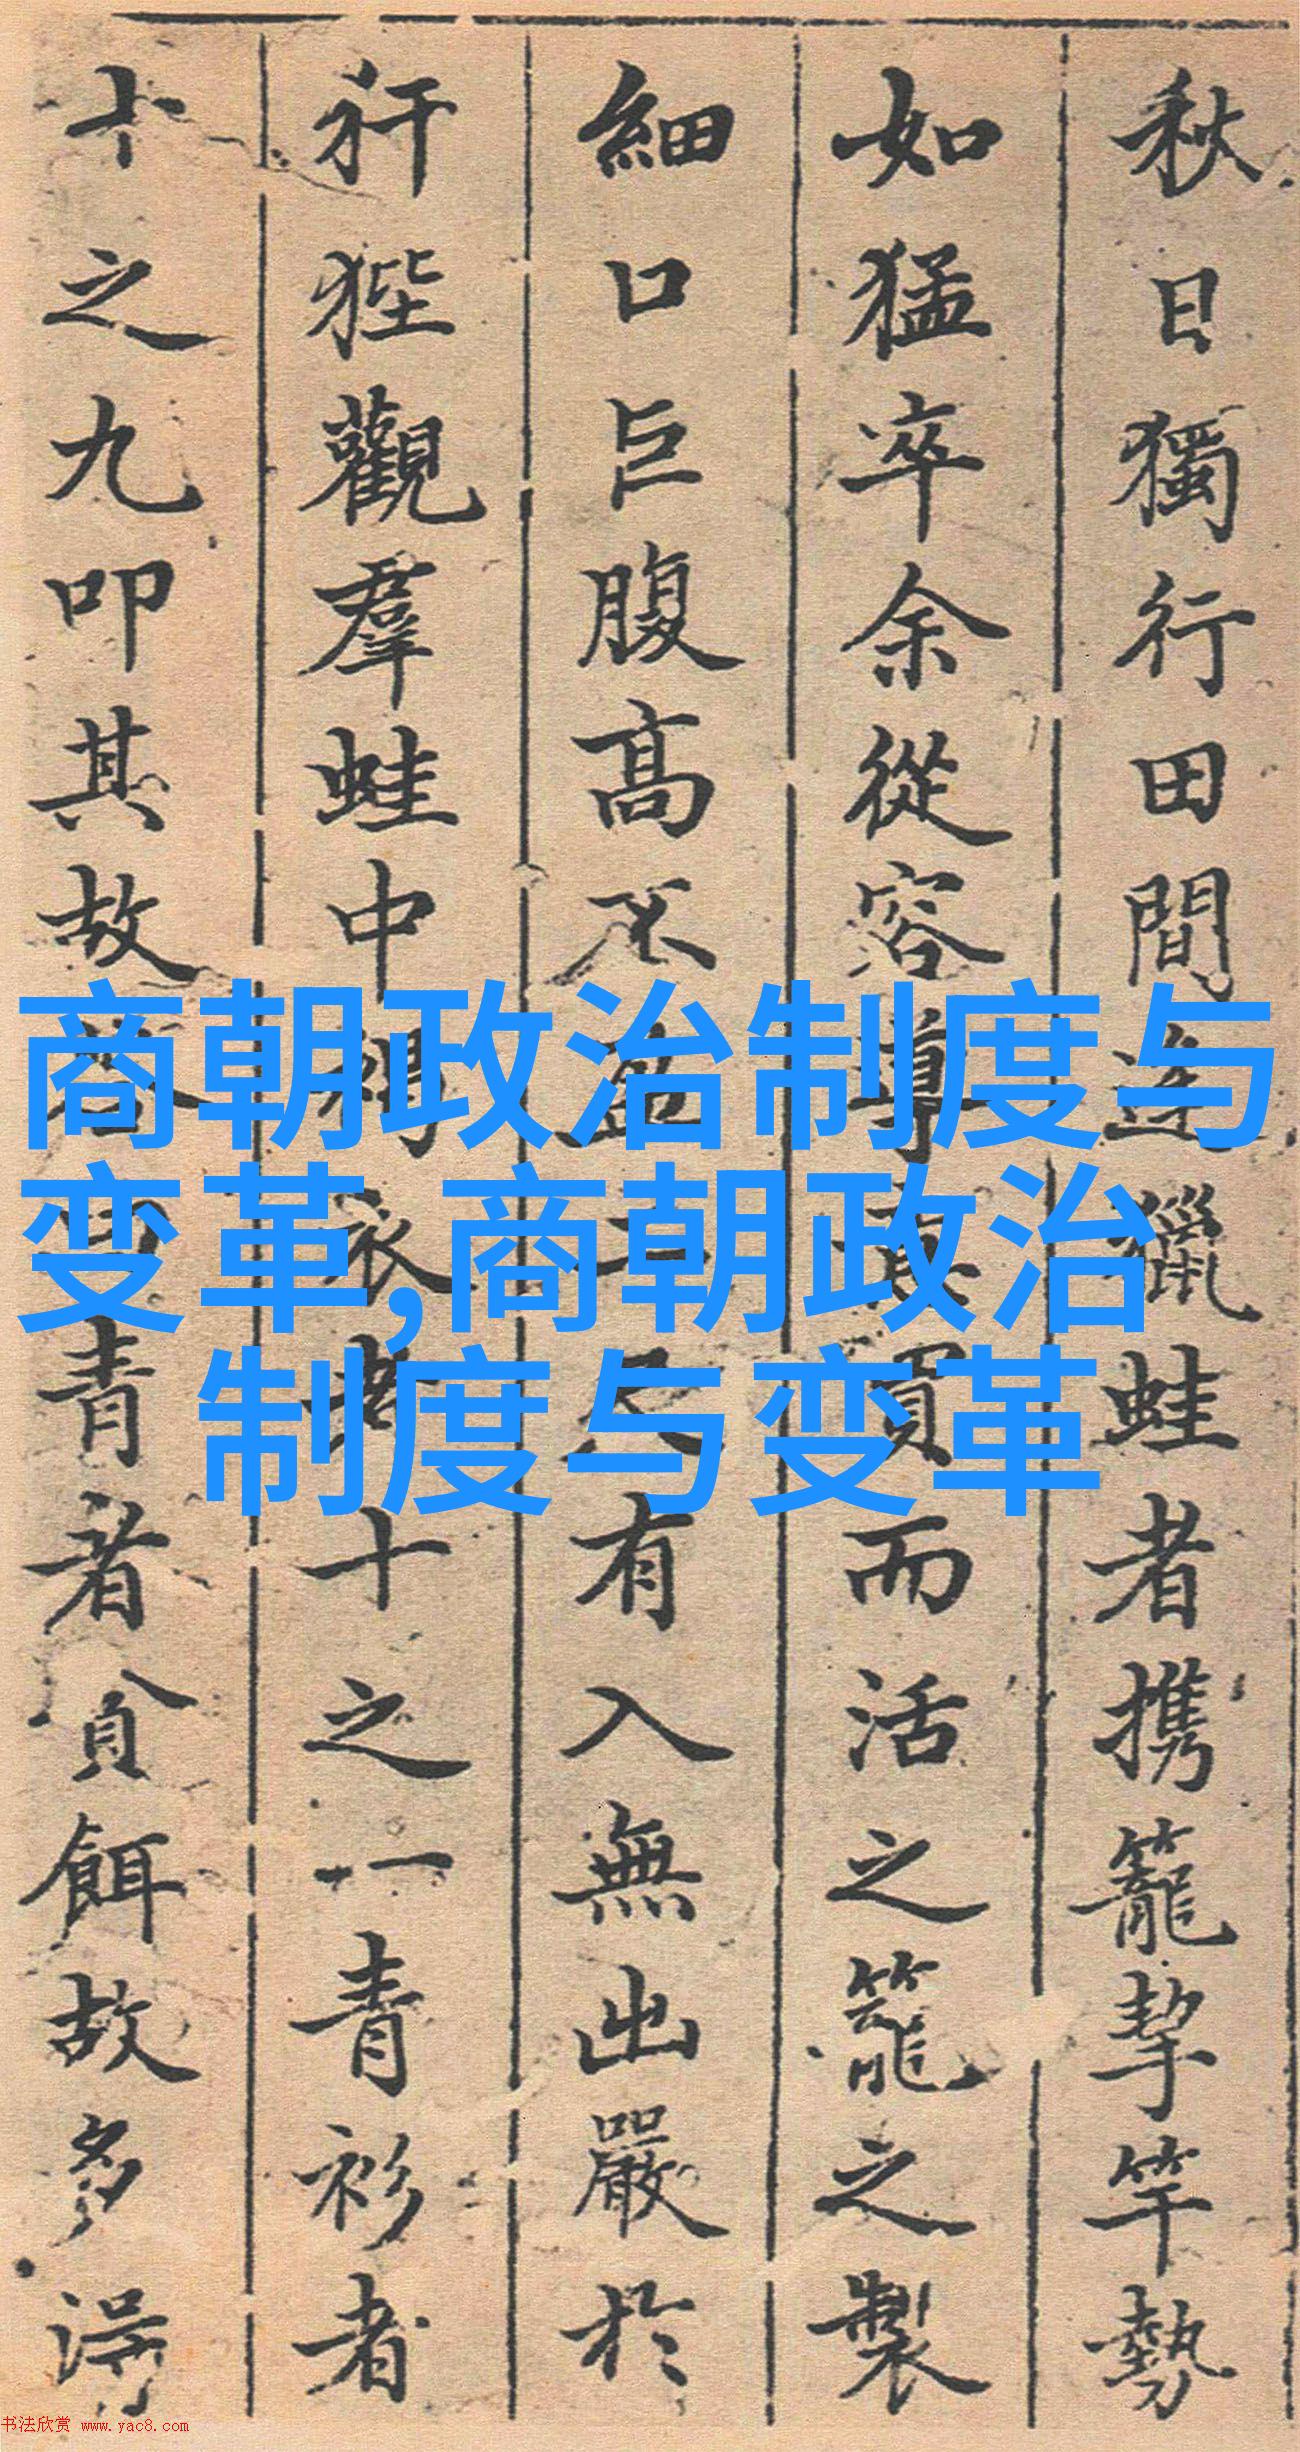 秋日獨行田間連獵蛙者携籠挈竿勢
如猛卒余從容導 買而活之籠之製
細口巨腹高不盈 尺有入無出嚴於
犴狴觀羣蛙中褐衣者十之一青衫者
十之九叩其故 青者貪餌故多得
商朝政治制度与
变革,商朝政治
制度与变革
书法欣赏 www.yac8.com